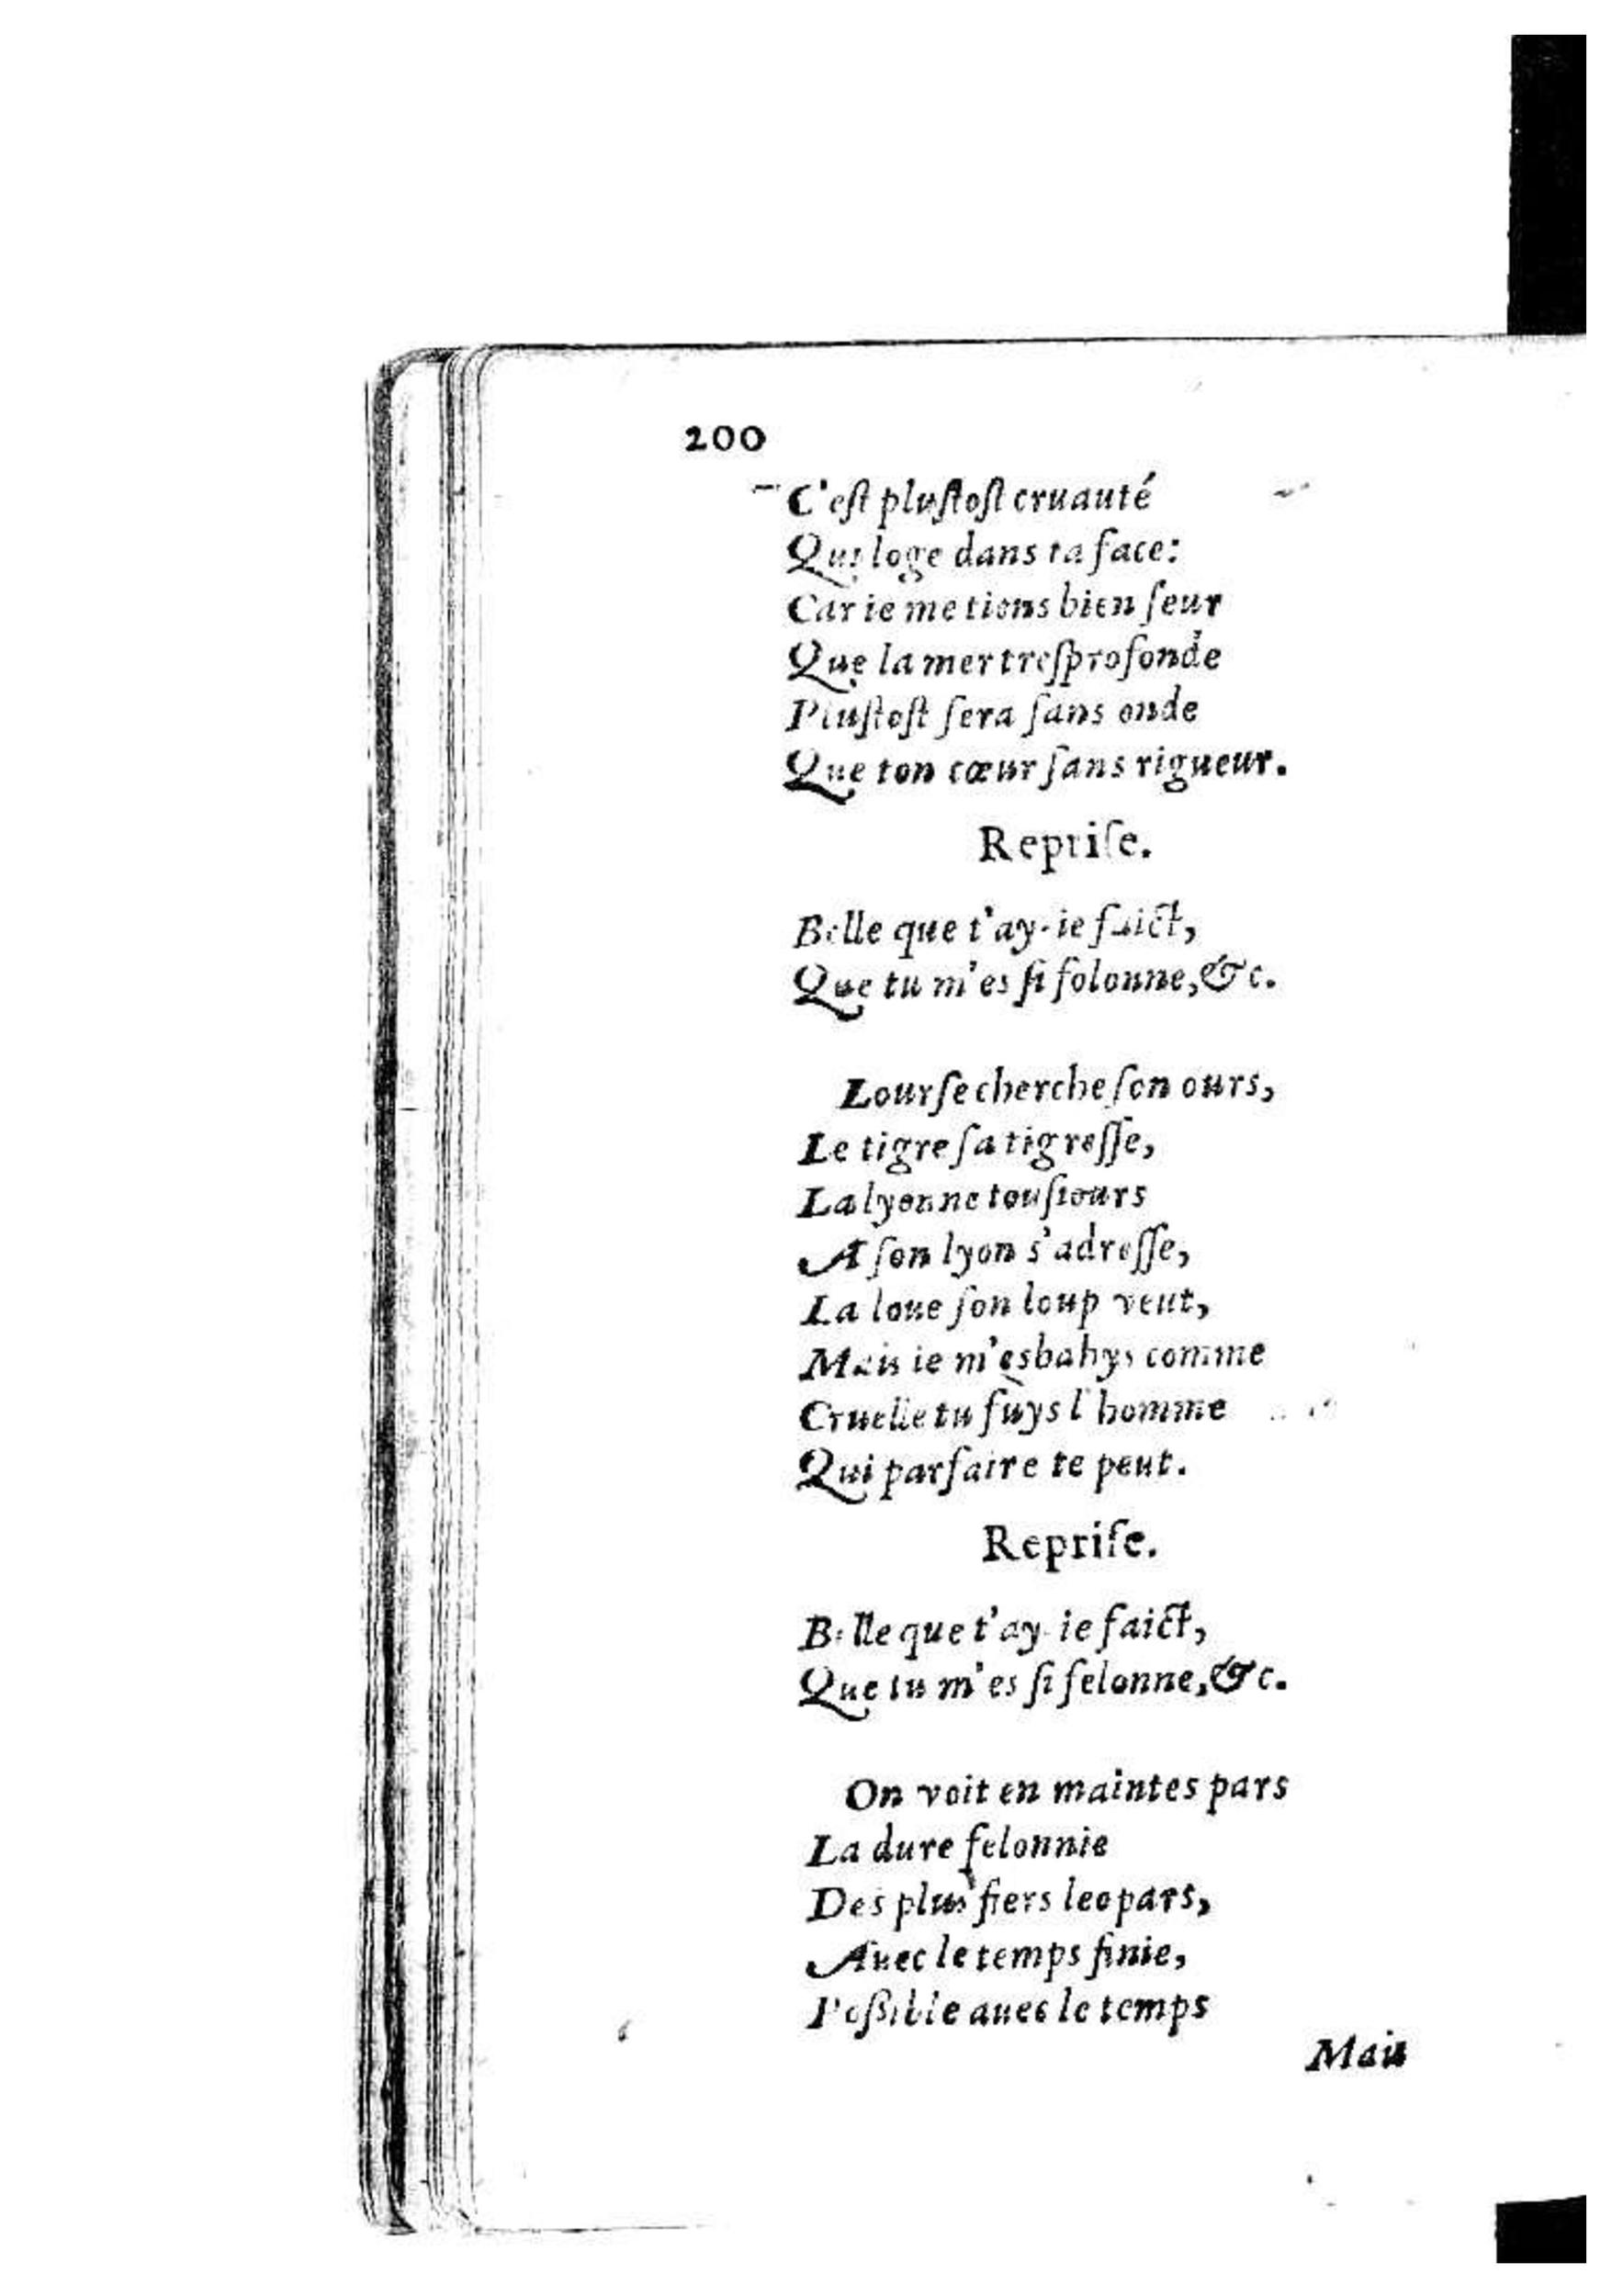 200
C'eſt pluſtoſt cruauté
Qui loge dans ta face:
Car ie me tiens bien ſeur
Que la mer treſprofonde
Pluſtoſt ſera ſans onde
Que ton cœur ſans rigueur.
Repriſe.
Belle que t'ay-ie faict,
Que tu m'es ſi folonne, &c.
Lourſe cherche ſon ours,
Le tigre ſa tigreſſe,
La lyonne touſiours
A ſon lyon s'adreſſe,
La loue ſon loup veut,
Mais ie m'esbahys comme
Cruelle tu fuys l'homme
Qui parfaire te peut.
Repriſe.
Belle que t'ay-ie faict,
Que tu m'es ſi felonne, &c.
On voit en maintes pars
La dure felonnie
Des plus fiers leopars,
Auec le temps finie,
Poſsible auec le temps
Mais